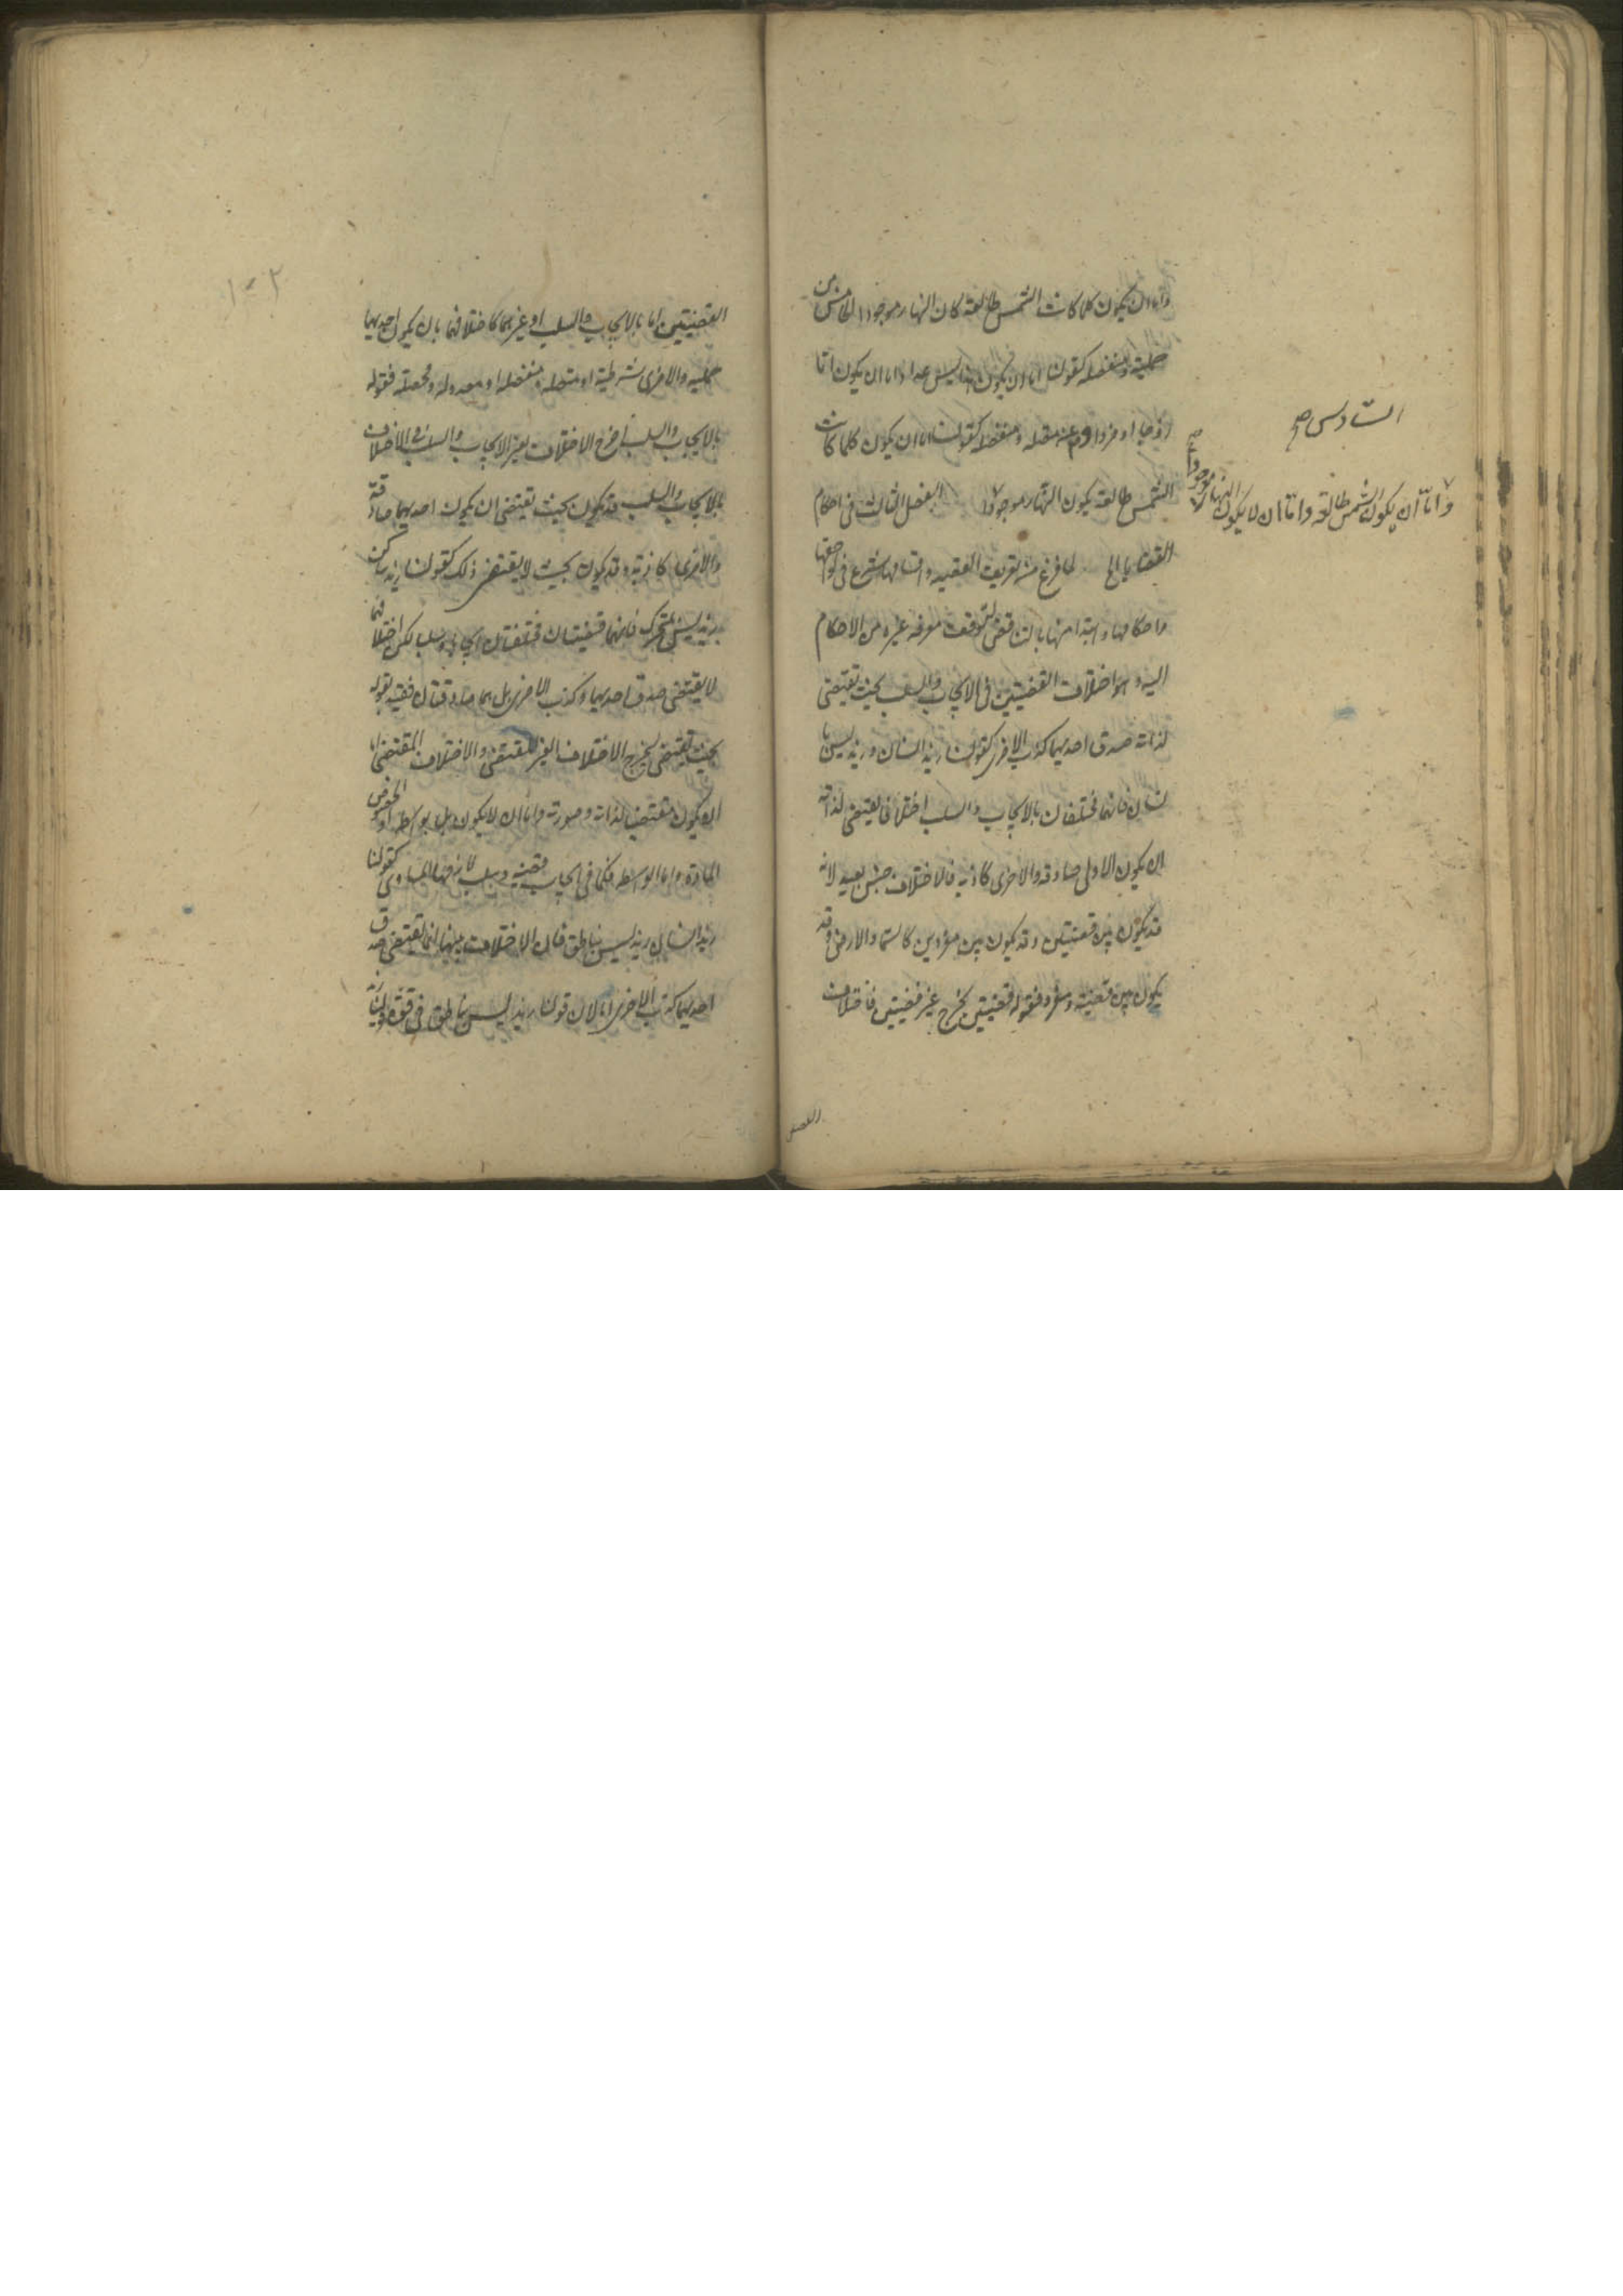 واما ان يكون كلما كانت الشمس طالعة كان النهار موجودا الخامس من
حملية ومنفصله كقولنا اما ان يكون هذا ليس عددا واما ان يكون اما
زوجا او فردا وم من متصله ومنفصله كقولنا اما ان يكون كلما كانت
الشمس طالعة يكون النهار موجودا الفصل الثالث فى احكام
القضايا الخ لما فرغ من تعريف القضيه واقسامها شرع فى لواحقها
واحكامها وابتدا منها بالتناقض لتوقف معرفه غيره من الاحكام
اليه وهو اختلاف القضيتين فى الايجاب والسلب بحيث تقتضى
لذاته صدق احديهما كذب الاخرى كقولنا زيد انسان وزيد ليس با
نسان فانهما مختلفان بالايجاب والسلب اختلافا يقتضى لذاته
ان يكون الاولى صادقه والاخرى كاذبه فالاختلاف جنس بعيد لانه
قد يكون بين قضيتين وقد يكون بين مفردين كالسما والارض وقد
يكون بين قضيته ومفرد فقوله قضيتين يخرج غير قضيتين فاختلاف
السّادس صح
واماّ ان يكون الشمس طالعة واماّ ان لا يكون النهار موجوداً صح
القضيتين
القضيتين اما بالايجاب والسلب او غيرهما كاختلافهما بان يكون احديهما
حمليه والاخرى شرطية او متصله ومنفصله او معدوله ومحصله فقوله
بالايجاب والسلب اخرج الاختلاف بغير الايجاب والسلب والاختلاف
بالايجاب والسلب قد يكون بحيث تقتضى ان يكون احديهما صادقة
والاخرى كاذبه وقد يكون بحيث لا يقتضى ذلك كقولنا زيد ساكن
زيد ليس بمتحرك فانهما قضيتان مختلفتان ايجابا وسلبا لكن اختلافهما
لا يقتضى صدق احديهما وكذب الاخرى بل هما صادقتان فقيد بقوله
بحيث تقتضى ليخرج الاختلاف الغير المقتضى والاختلاف المقتضى اما
ان يكون مقتضيا لذاته وصورته واما ان لا يكون بل بواسطه او لخصوص
المادة واما الواسطه فكما فى ايجاب قضيه وسلب لازمها المساوى كقولنا
زيد انسان زيد ليس بناطق فان الاختلاف بينهما انما يقتضى صدق
احديهما كذب الاخرى اما لان قولنا زيد ليس بناطق فى قوة قولنا زيد
١٠٢